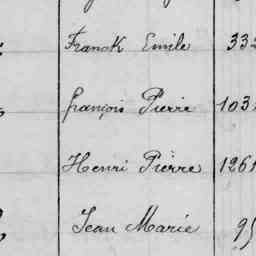 Franck Emile 332
françois Pierre 103
Henri Pièrre 1261
Jean Marie 95